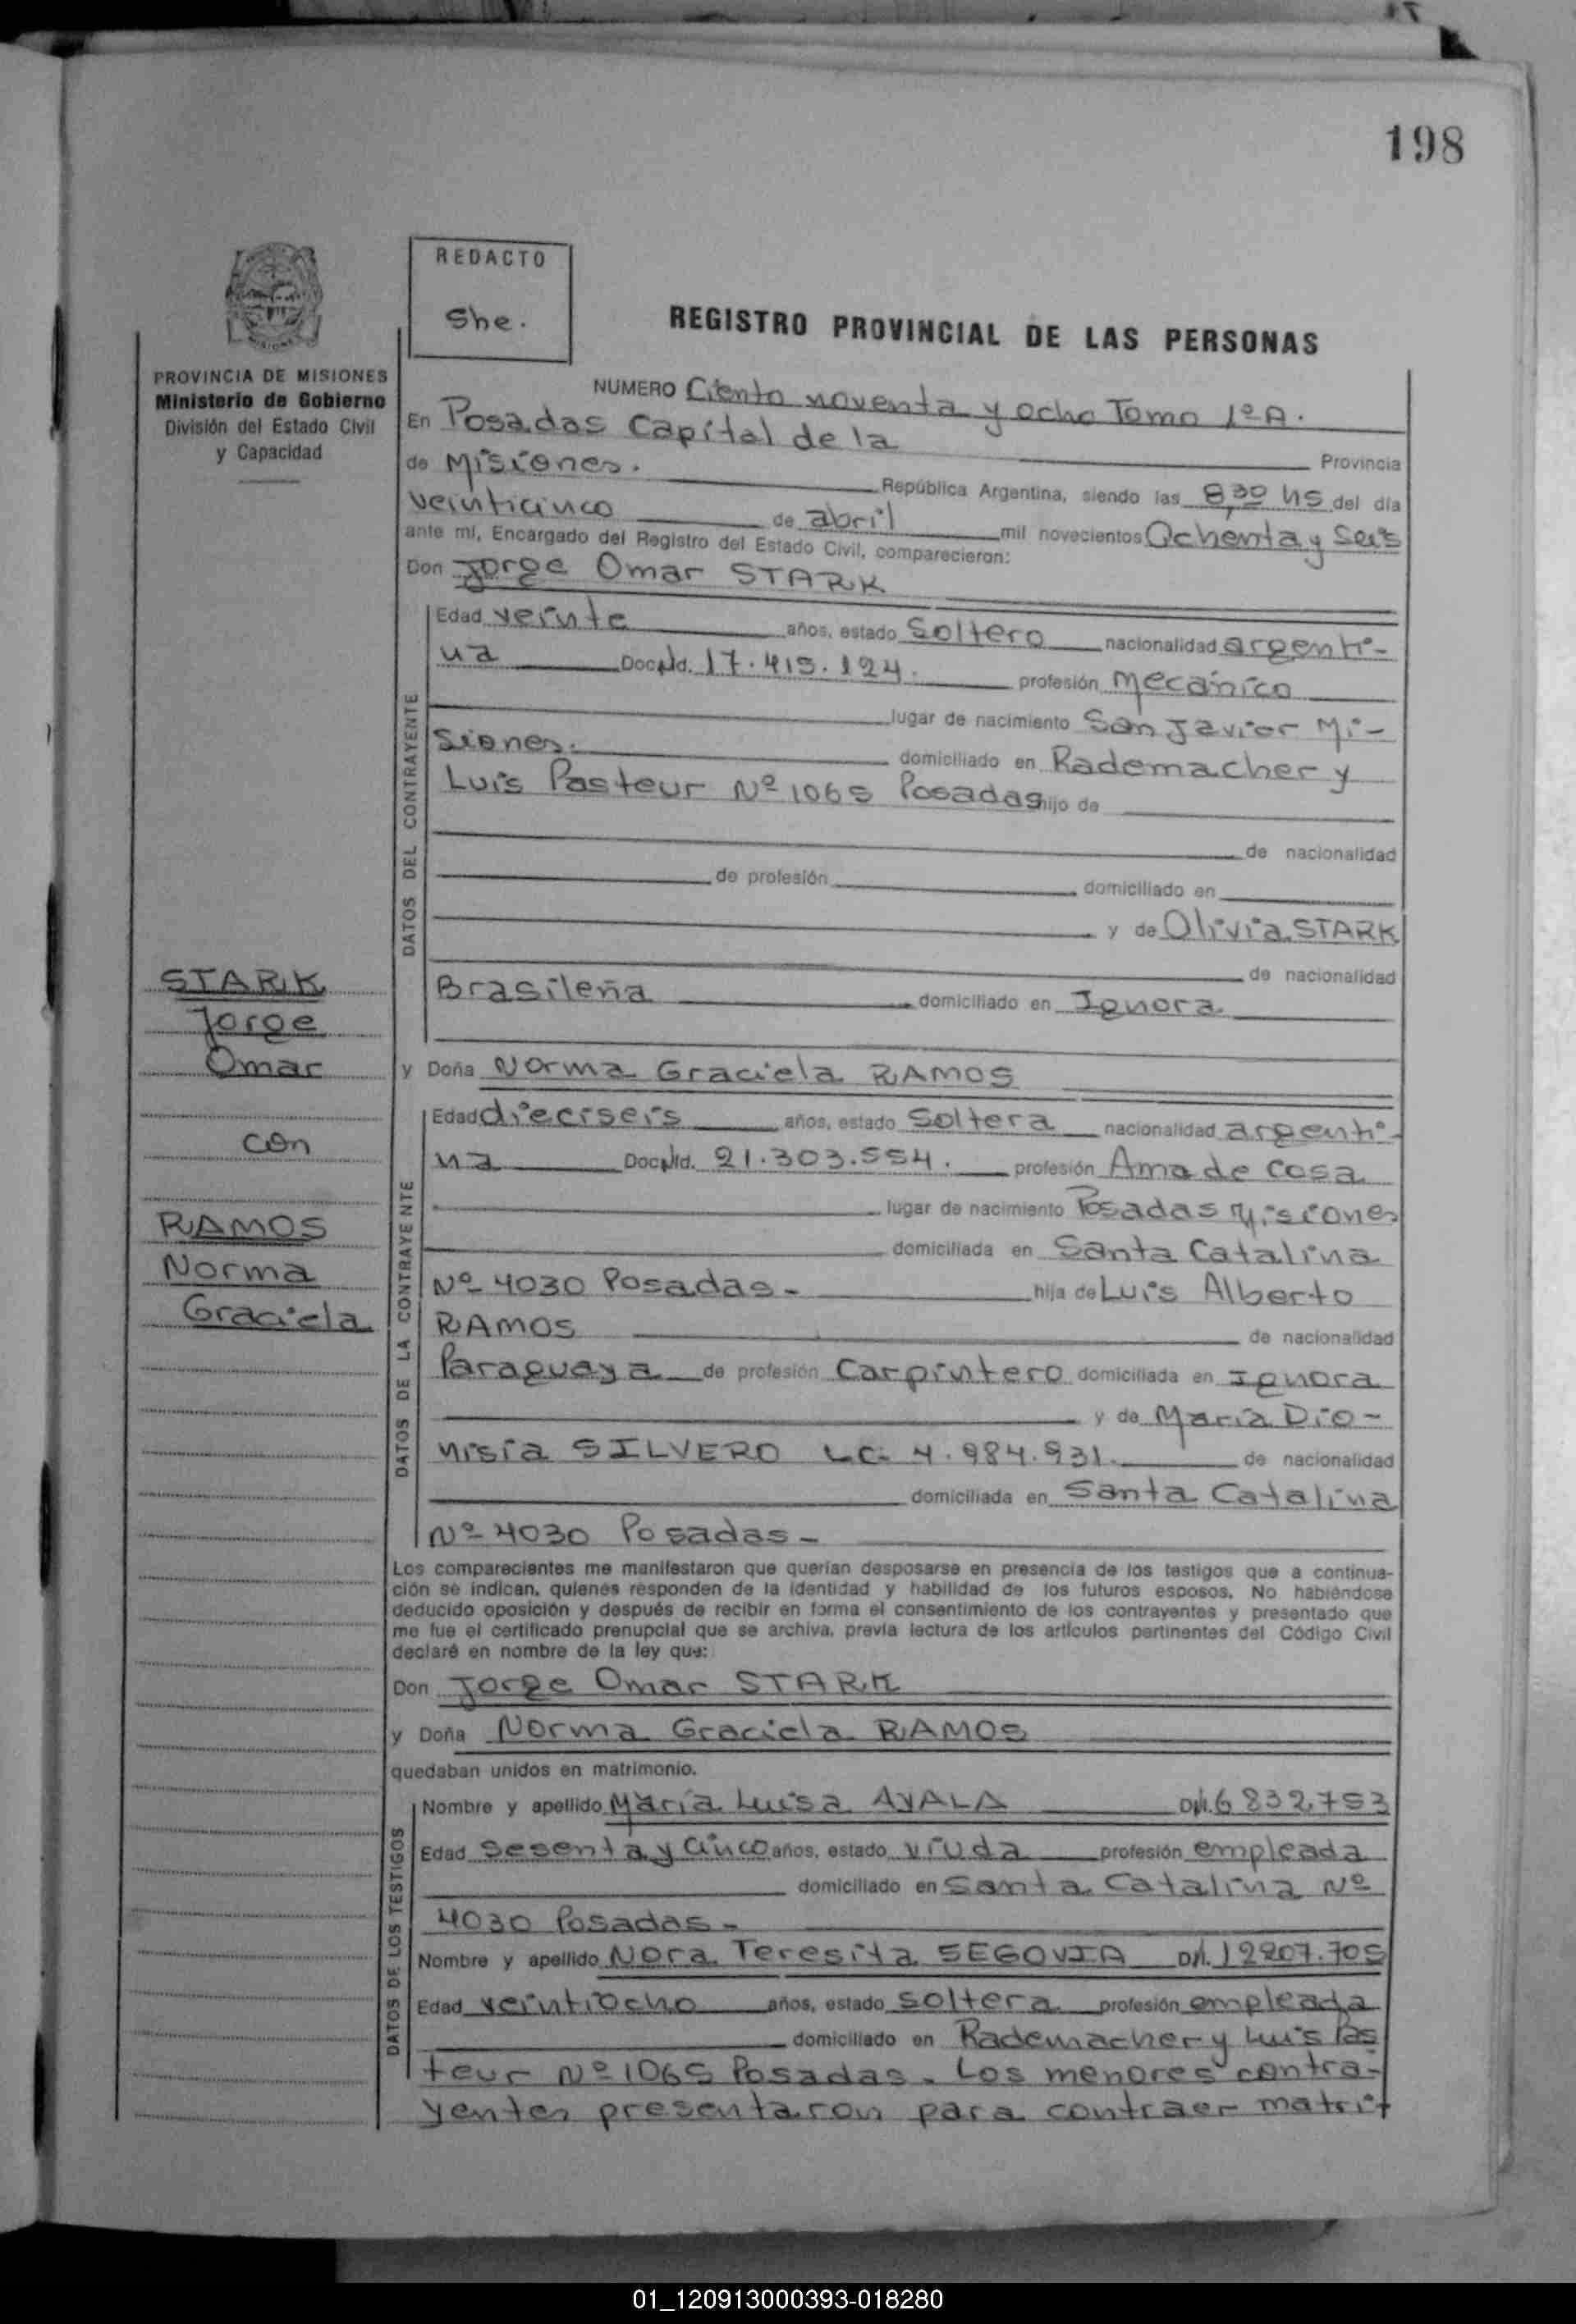 198
REDACTO
She.
REGISTRO PROVINCIAL DE LAS PERSONAS
PROVINCIA DE MISIONES
Ministerio de Gobierno
División del Estado Civil
y Capacidad
NUMERO Ciento noventa y ocho Tomo 1º A.
En Posadas Capital de la Provincia
de Misiones. República Argentina, siendo las 8,30 hs del día
veinticinco de abril mil novecientos Ochenta y Seis
ante mí, Encargado del Registro del Estado Civil, comparecieron:
Don Jorge Omar STARK
DATOS DEL CONTRAYENTE
Edad veinte años, estado Soltero nacionalidad argenti-
na Doc. Id. 17.415.124. profesión Mecánico
lugar de nacimiento San Javier Mi-
siones. domiciliado en Rademacher y
Luis Pasteur Nº 1065 Posadas hijo de
de nacionalidad
de profesión domiciliado en
y de Olivia STARK
de nacionalidad
Brasileña domiciliado en Ignora
STARK
Jorge
Omar
con
RAMOS
Norma
Graciela
y Doña Norma Graciela RAMOS
DATOS DE LA CONTRAYENTE
Edad dieciseis años, estado Soltera nacionalidad argenti-
na Doc. Id. 21.303.554. profesión Ama de casa
lugar de nacimiento Posadas Misiones
domiciliada en Santa Catalina
Nº 4030 Posadas- hija de Luis Alberto
RAMOS de nacionalidad
Paraguaya de profesión Carpintero domiciliada en Ignora
y de María Dio-
nisia SILVERO LC. 4.984.931. de nacionalidad
domiciliada en Santa Catalina
Nº 4030 Posadas-
Los comparecientes me manifestaron que querían desposarse en presencia de los testigos que a continua-
ción se indican, quienes responden de la identidad y habilidad de los futuros esposos. No habiéndose
deducido oposición y después de recibir en forma el consentimiento de los contrayentes y presentado que
me fue el certificado prenupcial que se archiva, previa lectura de los artículos pertinentes del Código Civil
declaré en nombre de la ley que:
Don Jorge Omar STARK
y Doña Norma Graciela RAMOS
quedaban unidos en matrimonio.
DATOS DE LOS TESTIGOS
Nombre y apellido María Luisa AYALA D.I. 6832.753
Edad sesenta y cinco años, estado viuda profesión empleada
domiciliado en Santa Catalina Nº
4030 Posadas-
Nombre y apellido Nora Teresita SEGOVIA D.I. 12207.705
Edad veintiocho años, estado soltera profesión empleada
domiciliado en Rademacher y Luis Pas
teur Nº 1065 Posadas. Los menores contra-
yentes presentaron para contraer matri-
01_120913000393-018280